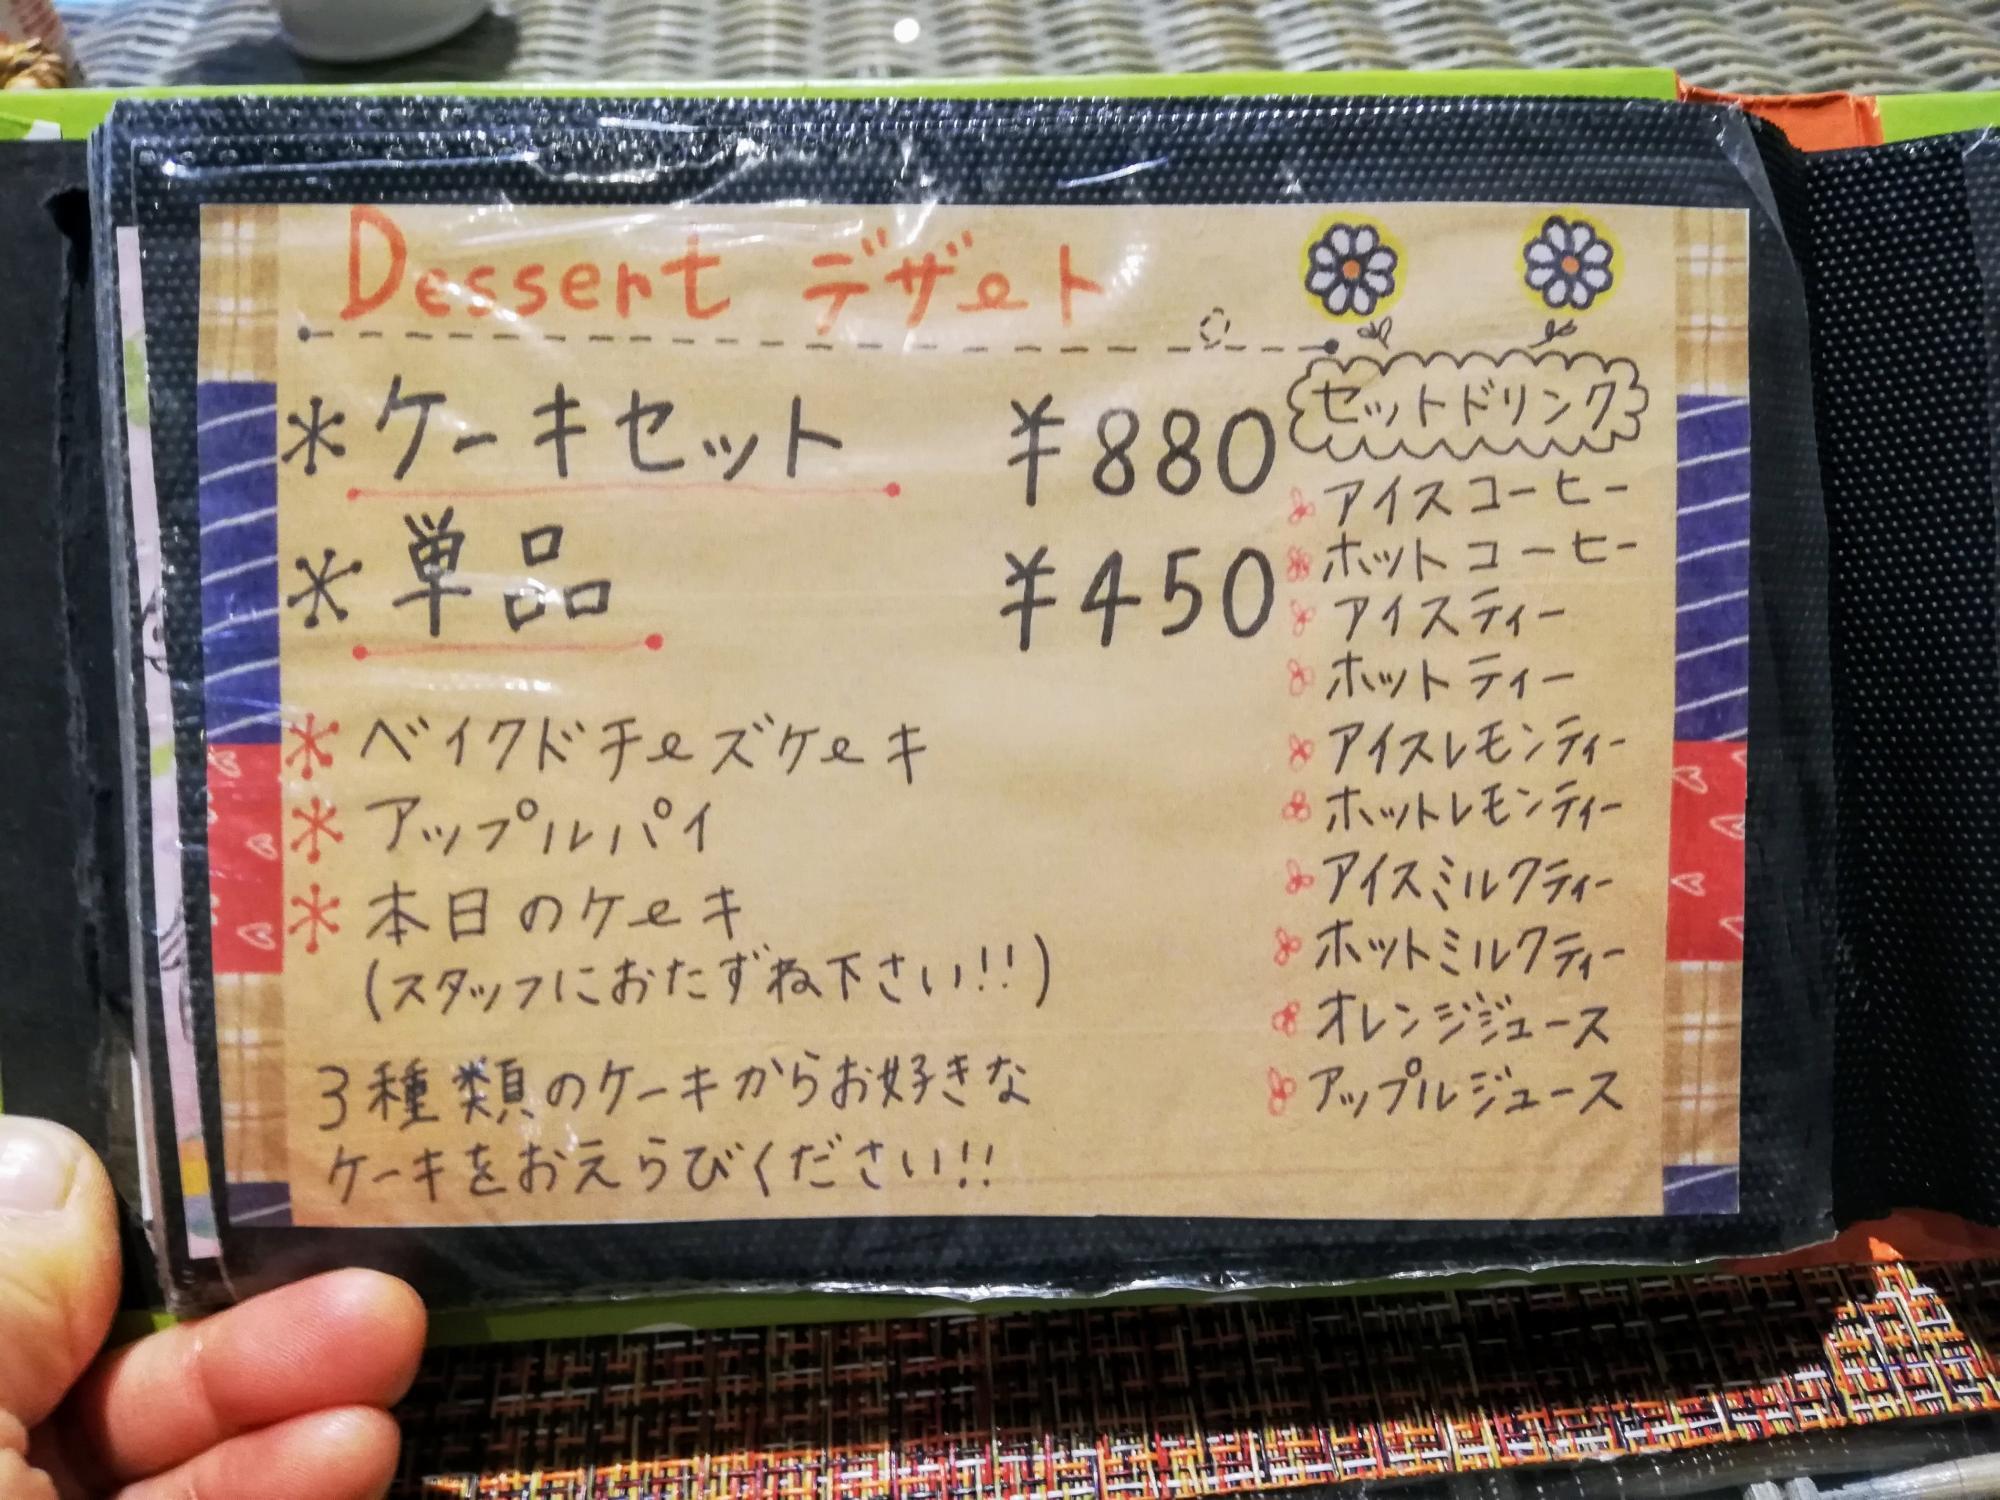 Dessert デザート
ケーキセット ¥880
単品 ¥450
ベイクドチーズケーキ
アップルパイ
本日のケーキ
(スタッフにおたずね下さい!!)
3種類のケーキからお好きな
ケーキをおえらびください!!
セットドリンク
アイスコーヒー
ホットコーヒー
アイスティー
ホットティー
アイスレモンティー
ホットレモンティー
アイスミルクティー
ホットミルクティー
オレンジジュース
アップルジュース